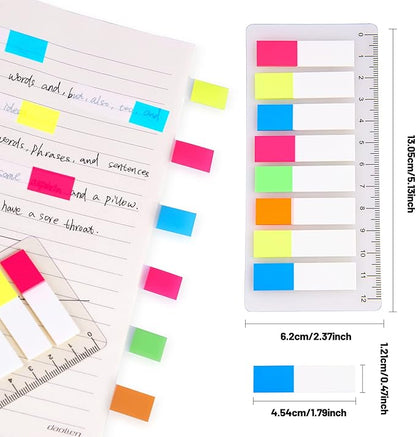 words and, but, also, too, and
ides
words, Phrases, and sentences
and a pillow.
have a sore throat.
daolien
0
1
2
3
4
5
6
7
8
9
10
11
12
13.05cm/5.13inch
6.2cm/2.37inch
1.21cm/0.47inch
4.54cm/1.79inch
0
1
2
3
4